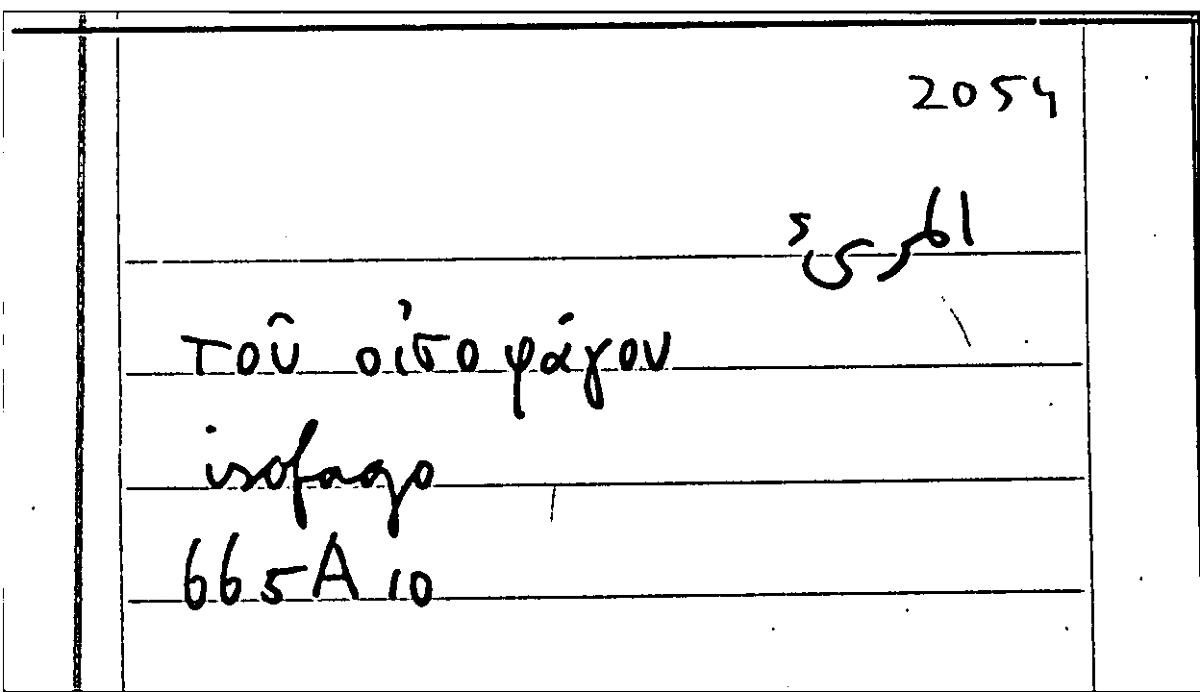 2054
61
τοῦ οἰσοφάγου
isofago
665A10